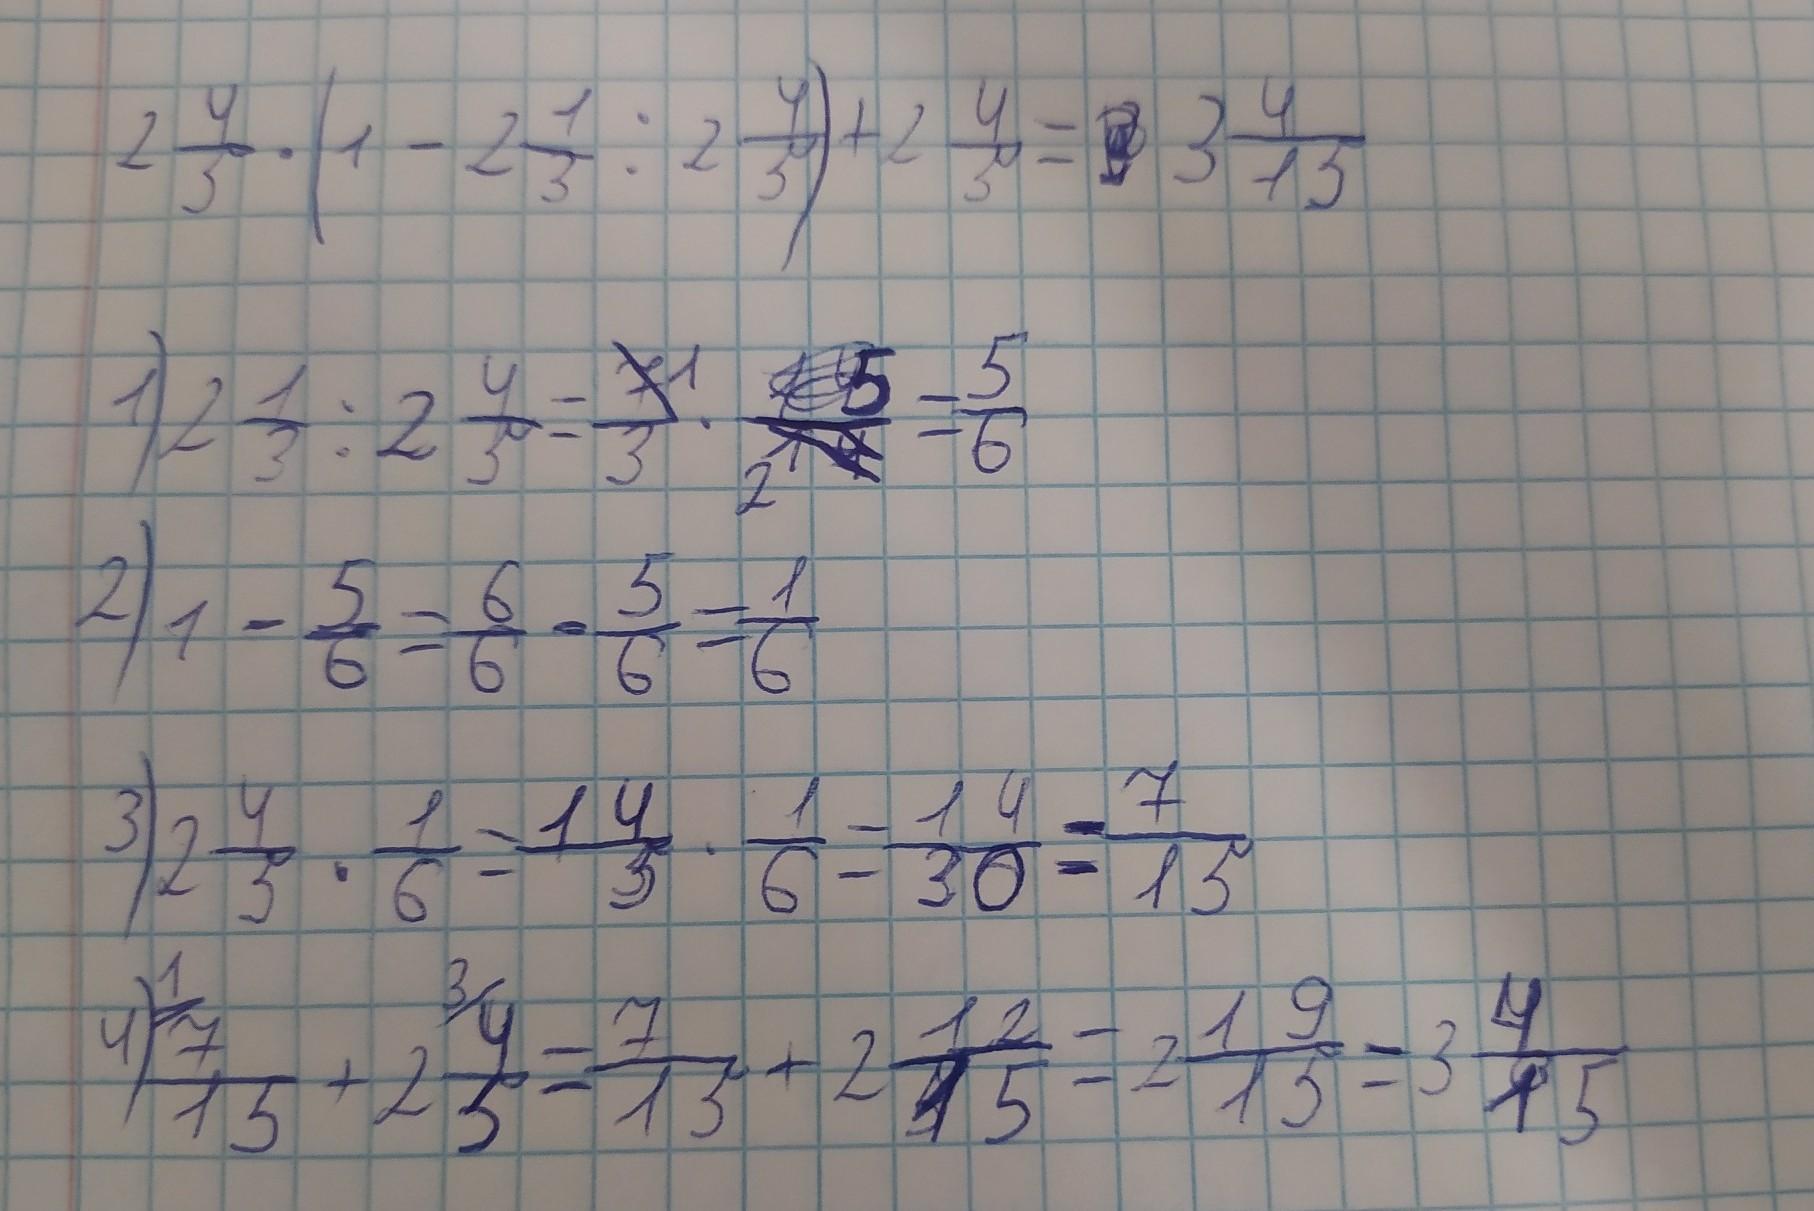 2 4/5 · (1 - 2 1/3 : 2 4/5) + 2 4/5 = 3 4/15
1) 2 1/3 : 2 4/5 = 7/3 1 · 5/14 2 = 5/6
2) 1 - 5/6 = 6/6 - 5/6 = 1/6
3) 2 4/5 · 1/6 = 14/5 · 1/6 = 14/30 = 7/15
4) 1/ 7/15 + 2 3/ 4/5 = 7/15 + 2 12/15 = 2 19/15 = 3 4/15